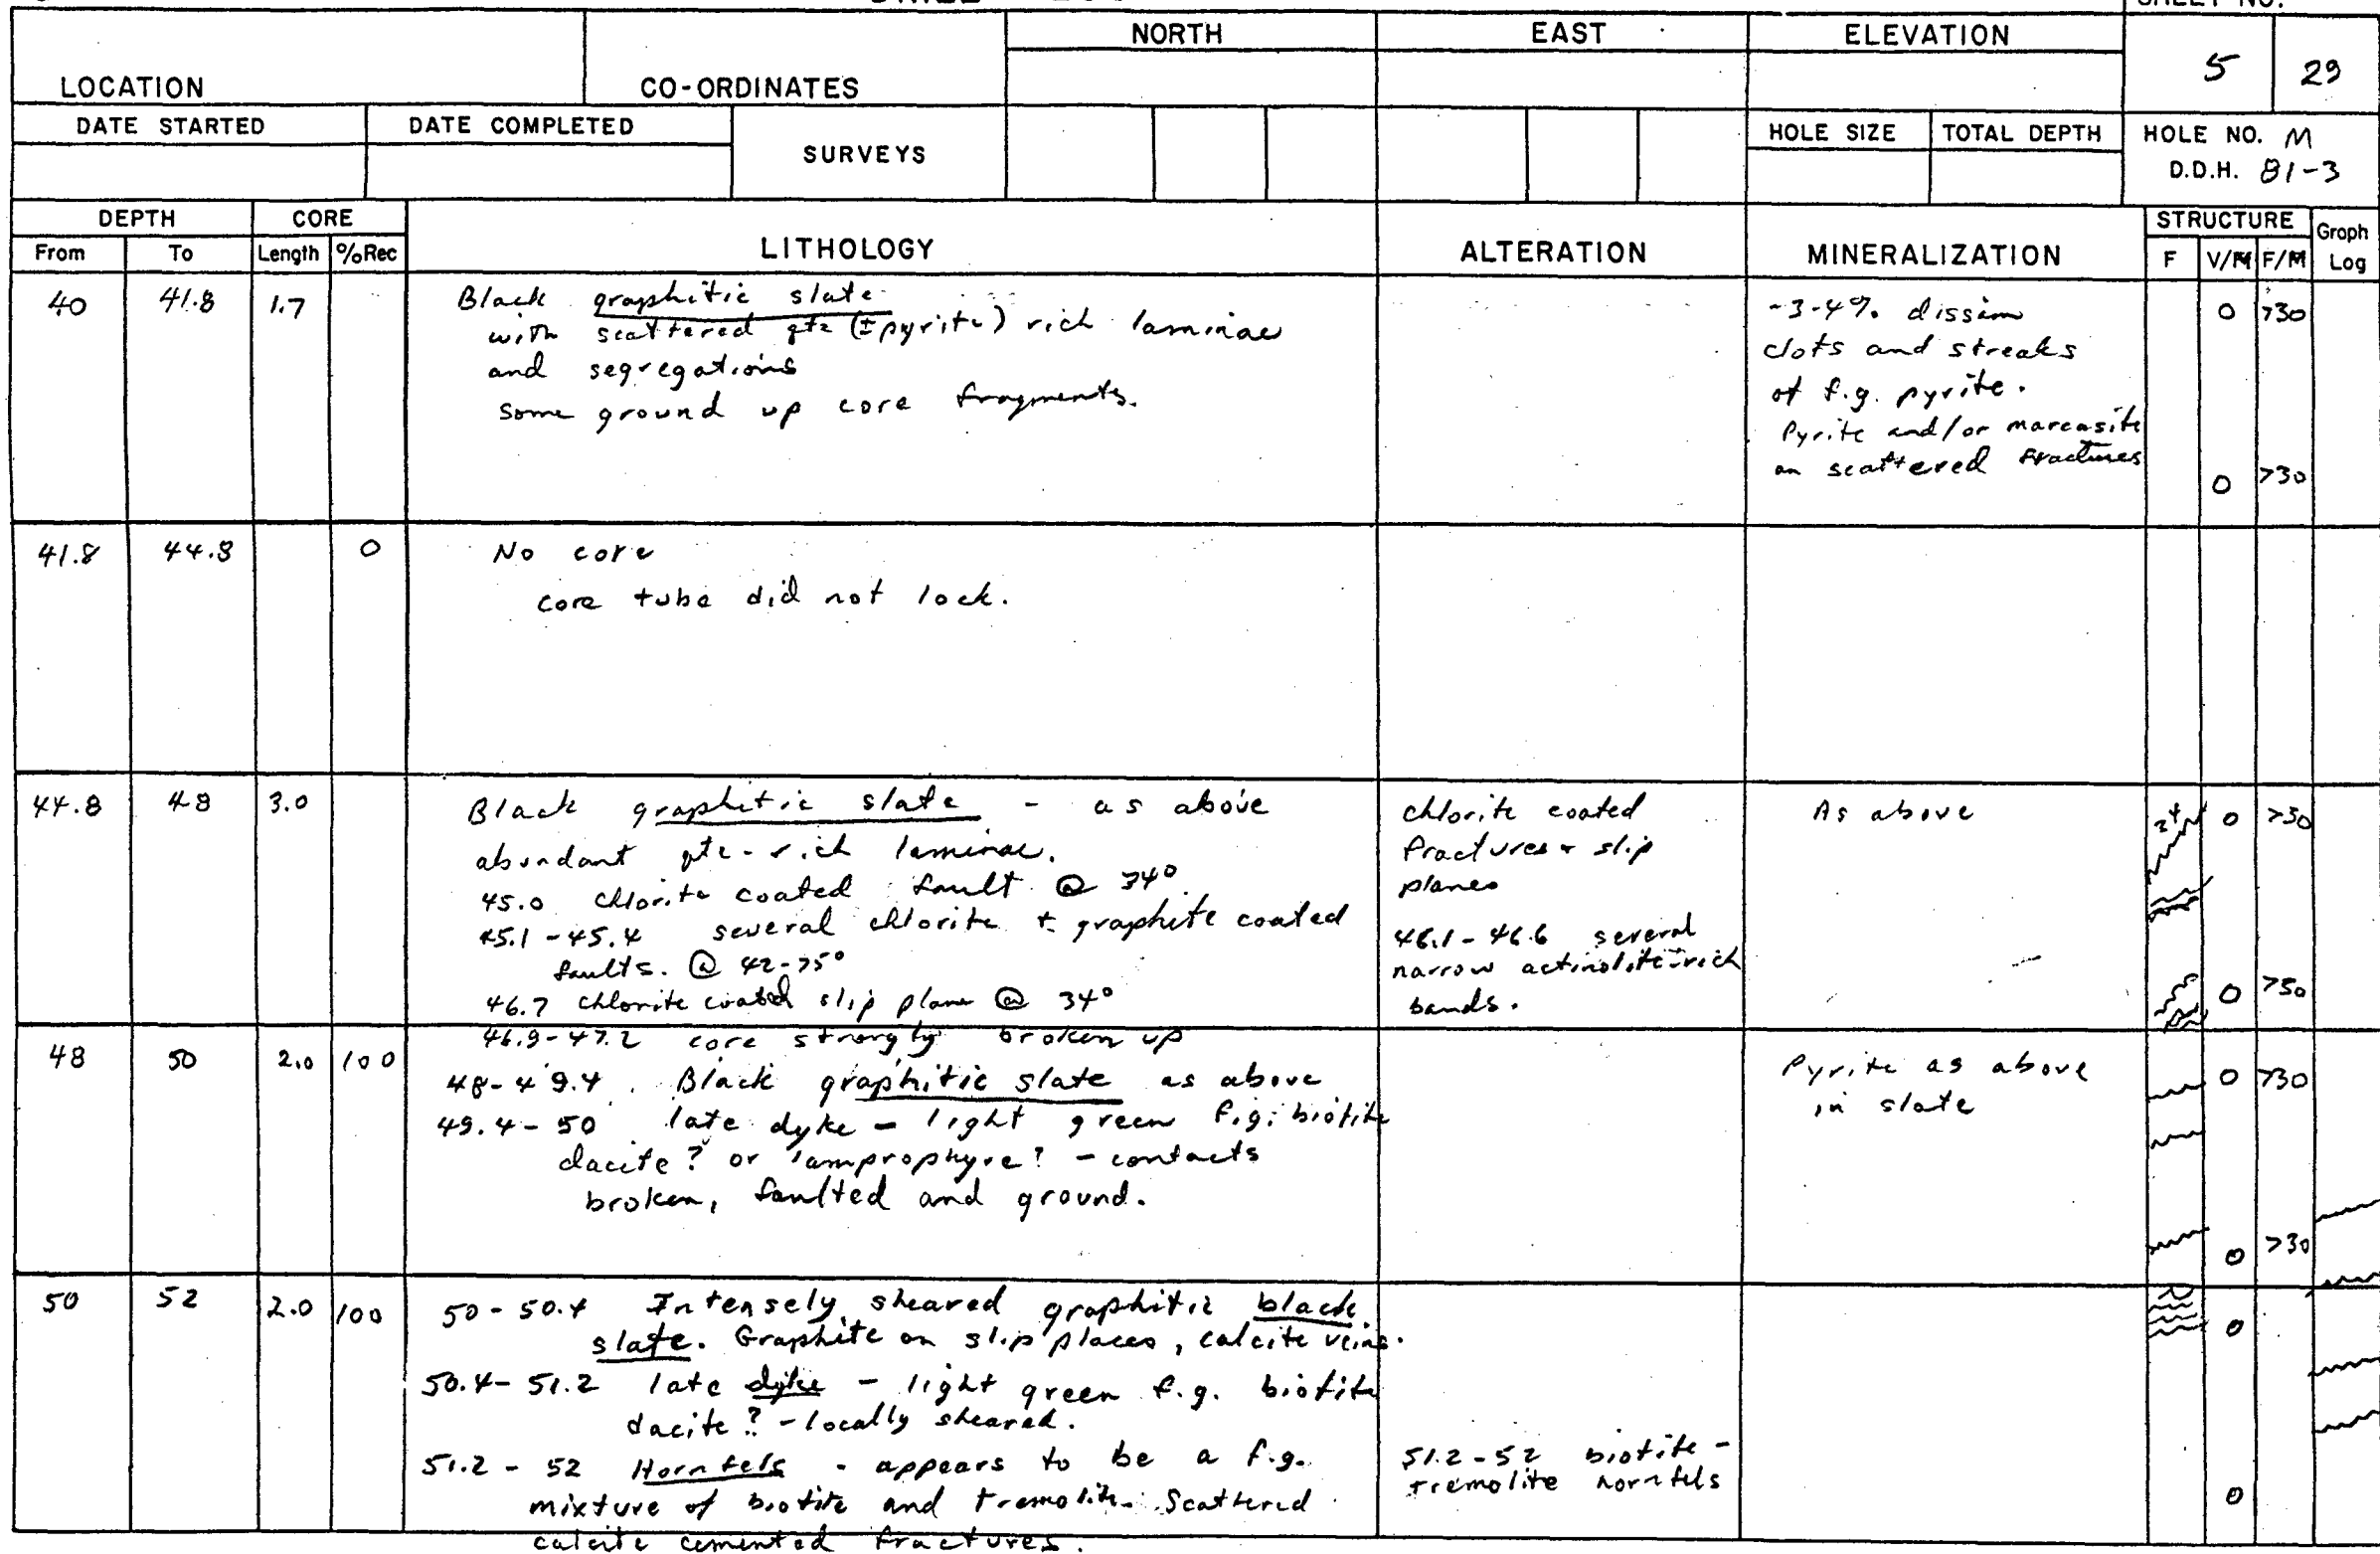 NORTH EAST ELEVATION
LOCATION CO-ORDINATES 5 29
DATE STARTED DATE COMPLETED SURVEYS HOLE SIZE TOTAL DEPTH HOLE NO. M
D.D.H. 81-3
DEPTH CORE LITHOLOGY ALTERATION MINERALIZATION STRUCTURE Graph
From To Length %Rec F V/M F/M Log
40 41.8 1.7 Black graphitic slate
with scattered qtz (±pyrite) rich laminae
and segregations
some ground up core fragments.
~3-4% dissem
clots and streaks
of f.g. pyrite.
Pyrite and/or marcasite
on scattered fractures
0 >30
0 >30
41.8 44.8 0 No core
core tube did not lock.
44.8 48 3.0 Black graphitic slate - as above
abundant qtz-rich laminae.
45.0 chlorite coated fault @
45.1-45.4 several chlorite + graphite coated
faults. @ 42-75°
46.7 chlorite coated slip plane @ 34°
46.9-47.2 core strongly broken up
chlorite coated
fractures + slip
planes
46.1-46.6 several
narrow actinolite-rich
bands.
As above
0 >30
0 >50
48 50 2.0 100 48-49.4 . Black graphitic slate as above
49.4-50 late dyke - light green f.g. biotite
dacite? or lamprophyre? - contacts
broken, faulted and ground.
Pyrite as above
in slate
0 >30
0 >30
50 52 2.0 100 50-50.4 Intensely sheared graphitic black
slate. Graphite on slip places, calcite veins.
50.4-51.2 late dyke - light green f.g. biotite
dacite? - locally sheared.
51.2-52 Hornfels - appears to be a f.g.
mixture of biotite and tremolite. Scattered
calcite cemented fractures.
51.2-52 biotite-
tremolite hornfels
0
0